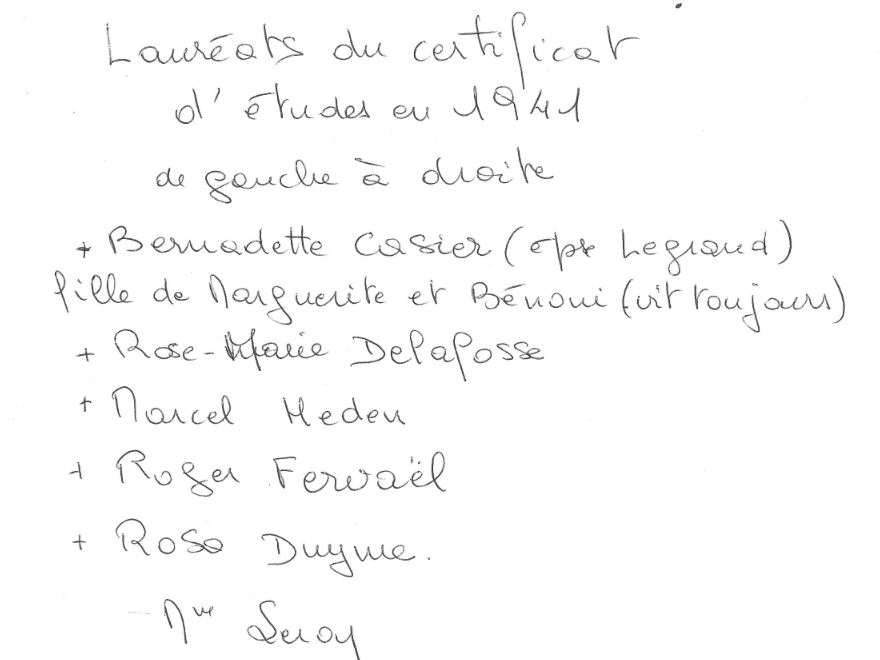 Lauréats du certificat
d'études en 1941
de gauche à droite
+ Bernadette Casier (épse Legrand)
fille de Marguerite et Bénoni (vit toujours)
+ Rose-Marie Delafosse
+ Marcel Heden
+ Roger Fervaël
+ Rosa Duyme.
- Mme Leroy